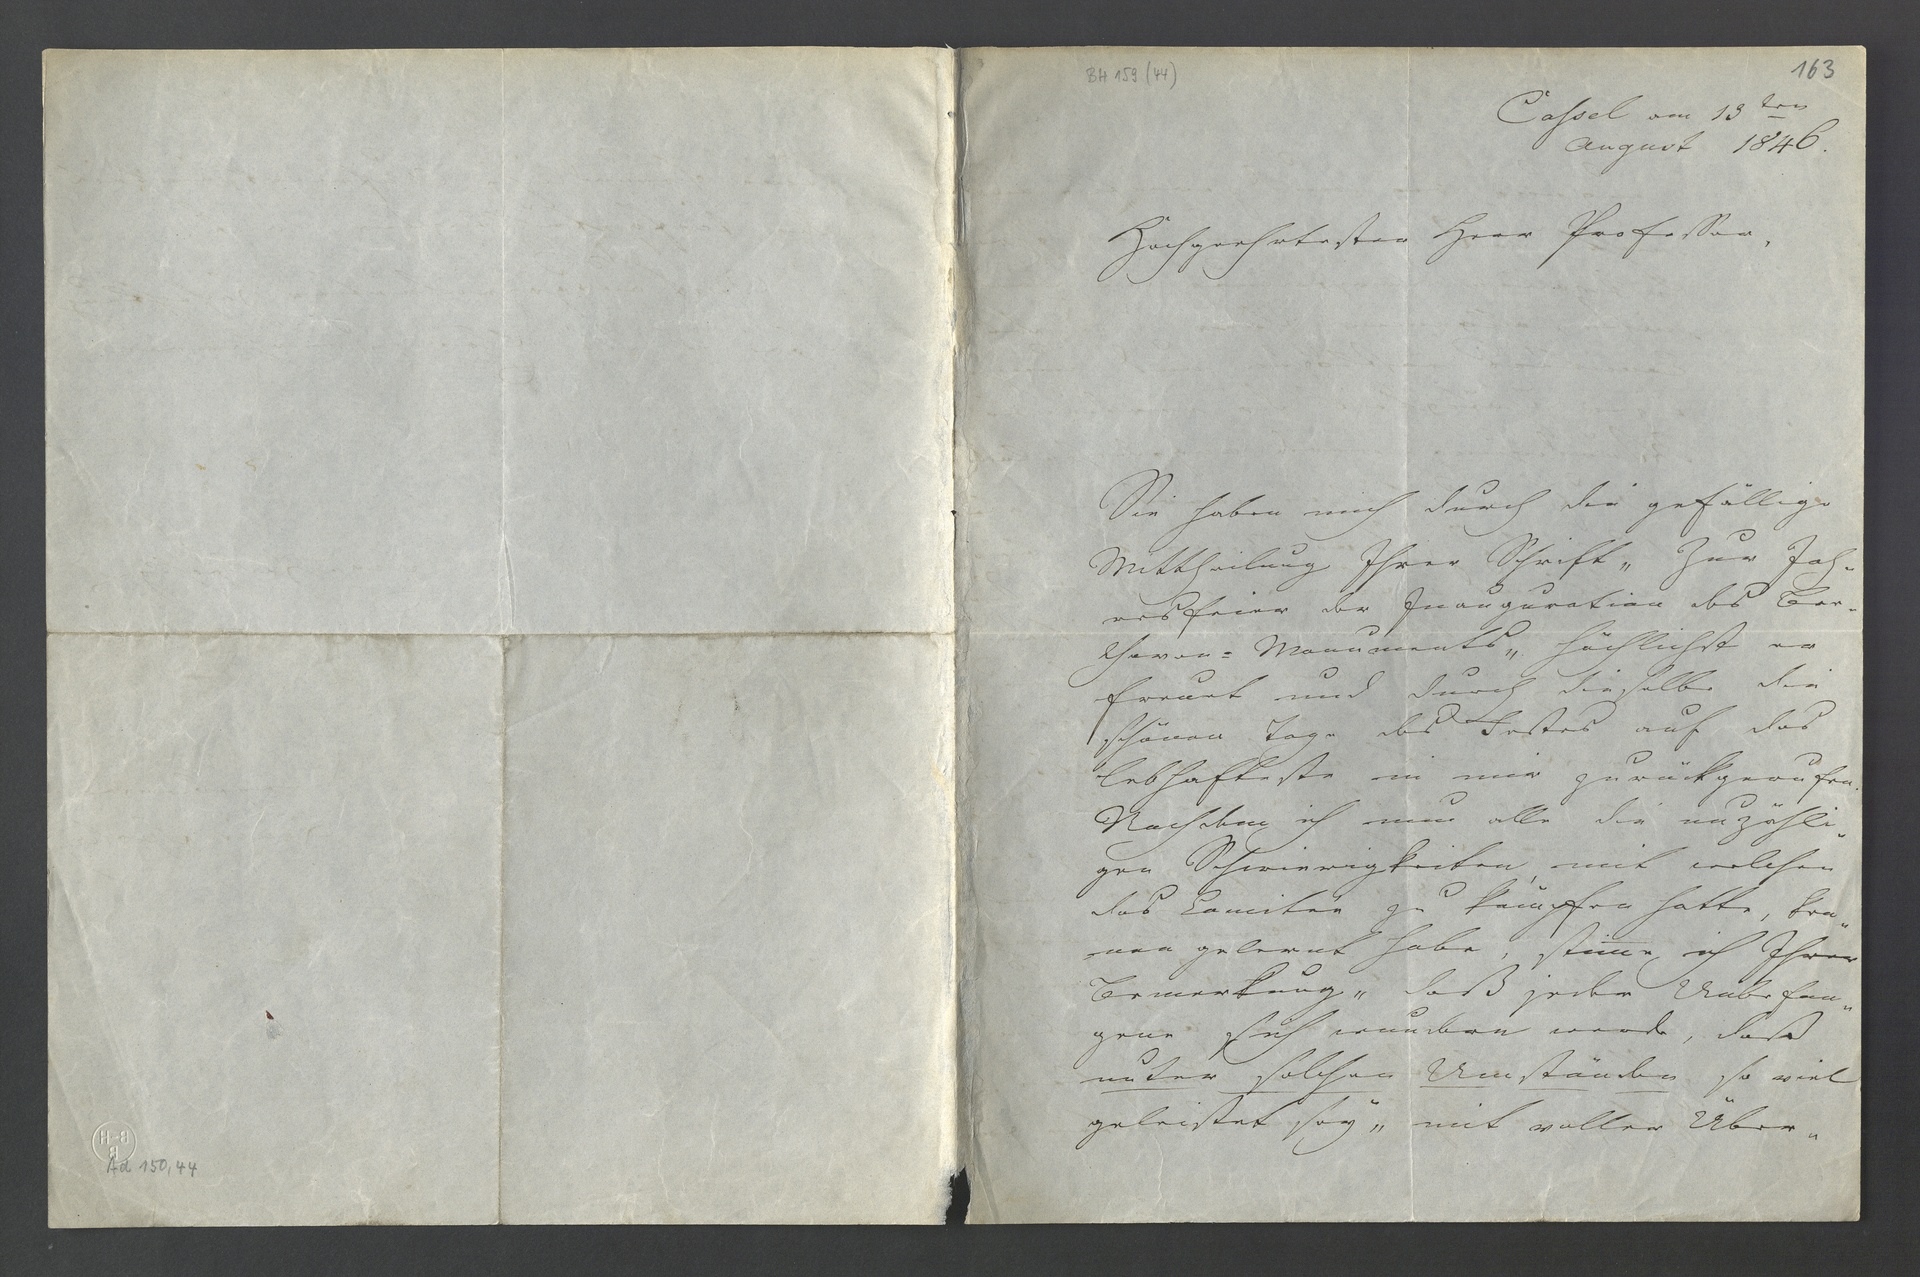 BH 159 (44)
163
Cassel am 13ten
August 1846.
Hochgeehrtester Herr Professor,
Sie haben mich durch die gefällige
Mittheilung Ihrer Schrift „ Zur Jah-
resfeier der Inauguration des Bee-
thoven= Monuments„ höchlichst er
freuet und durch dieselbe die
schönen Tage des Festes auf das
lebhafteste in mir zurückgerufen.
Nachdem ich nun alle die unzähli-
gen Schwierigkeiten, mit welchen
das Comitée zu kämpfen hatte, ken-
nen gelernt habe, stimme ich Ihrer
Bemerkung „ daß jeder Unbefan-
gene sich wundern werde, daß
unter solchen Umständen so viel
geleistet sey „ mit voller Über-
B-H
B
Ad 150,44